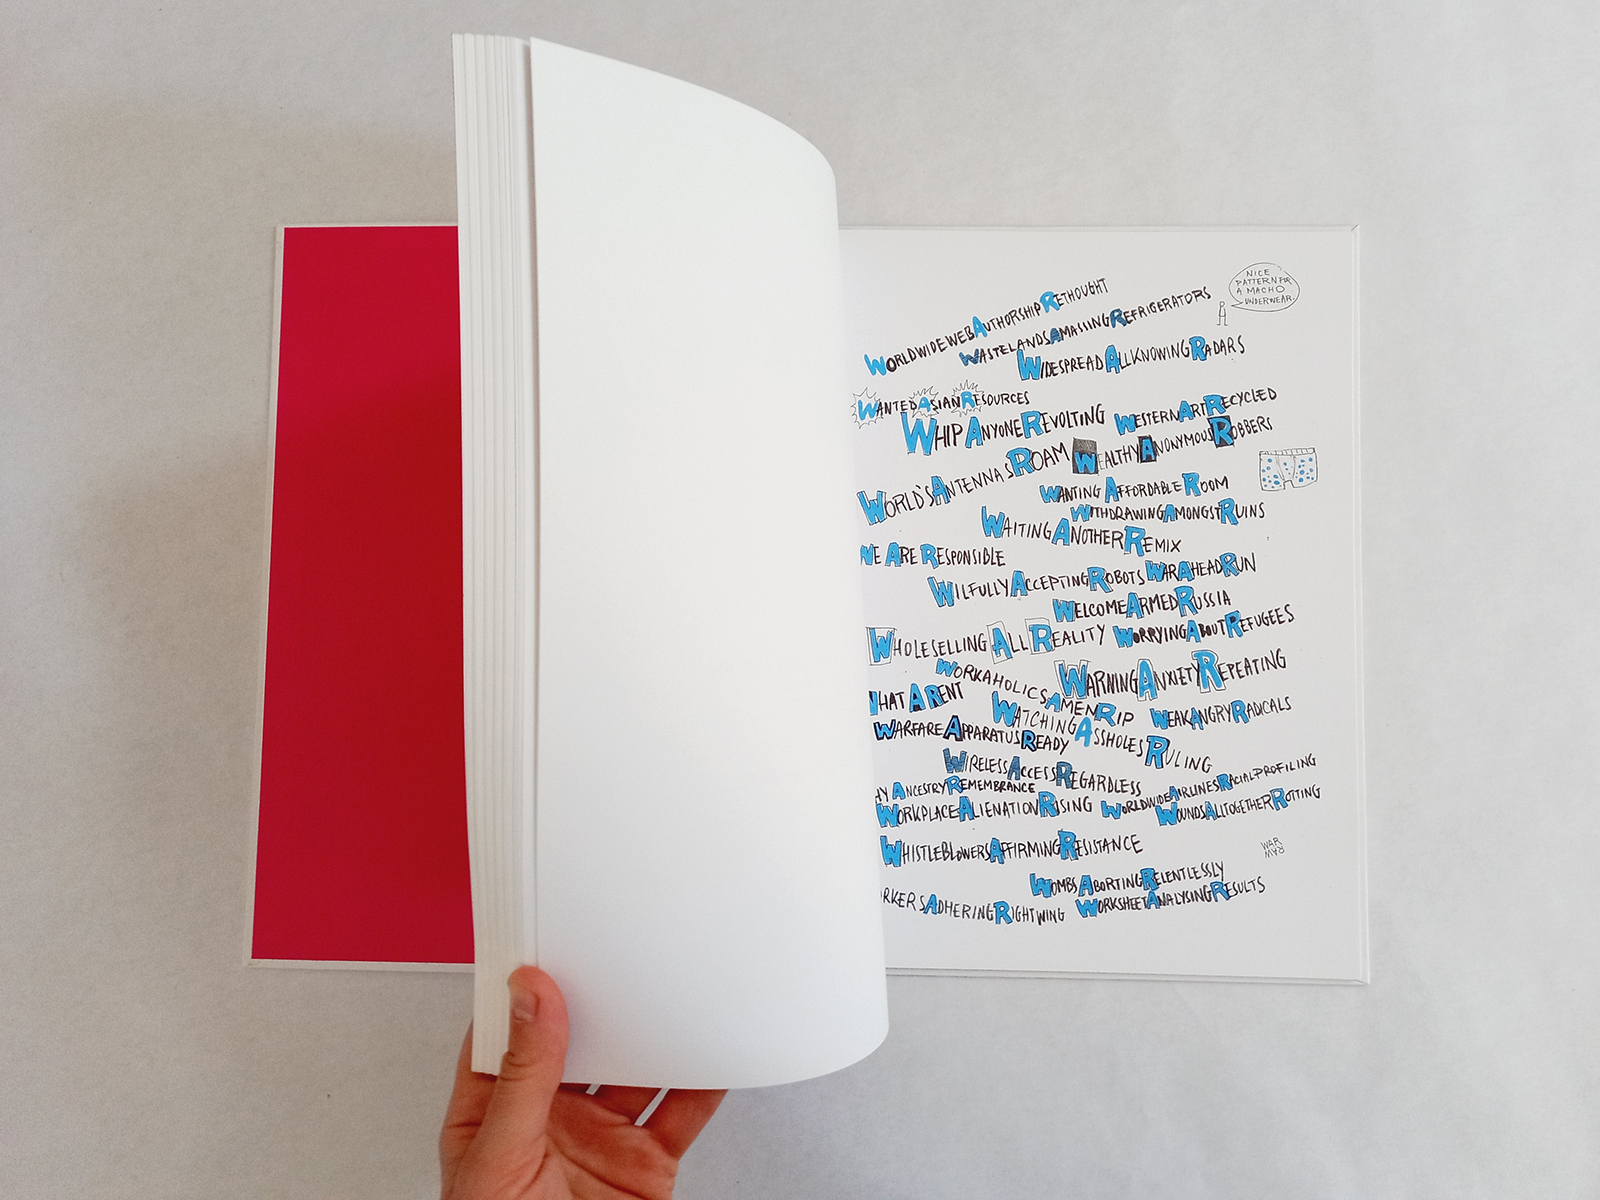 NICE
PATTERN FOR
A MACHO
UNDERWEAR.
WORLDWIDEWEB AUTHORSHIP RETHOUGHT
WASTELANDS AMASSING REFRIGERATORS
WIDESPREAD ALLKNOWING RADARS
WANTED ASIAN RESOURCES
WHIP ANYONE REVOLTING
WESTERN ART RECYCLED
WORLD'S ANTENNAS ROAM
WEALTHY ANONYMOUS ROBBERS
WANTING AFFORDABLE ROOM
WITHDRAWING AMONGST RUINS
WAITING ANOTHER REMIX
WE ARE RESPONSIBLE
WILFULLY ACCEPTING ROBOTS
WAR AHEAD RUN
WELCOME ARMED RUSSIA
WHOLESELLING ALL REALITY
WORRYING ABOUT REFUGEES
WORKAHOLICS AMEN RIP
WARNING ANXIETY REPEATING
WHAT A RENT
WATCHING ASSHOLES RULING
WEAK ANGRY RADICALS
WARFARE APPARATUS READY
WIRELESS ACCESS REGARDLESS
HY ANCESTRY REMEMBRANCE
WORLDWIDE AIRLINES RACIAL PROFILING
WORKPLACE ALIENATION RISING
WOUNDS ALTOGETHER ROTTING
WHISTLEBLOWERS AFFIRMING RESISTANCE
WAR
WOMBS ABORTING RELENTLESSLY
RKERS ADHERING RIGHT WING
WORKSHEET ANALYSING RESULTS